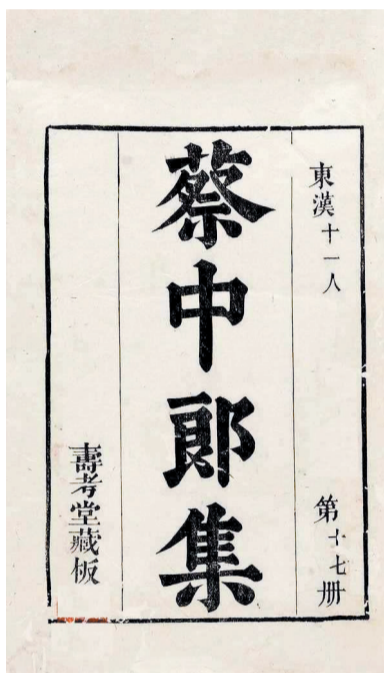 東漢十一人
第十七册
蔡中郎集
壽考堂藏板